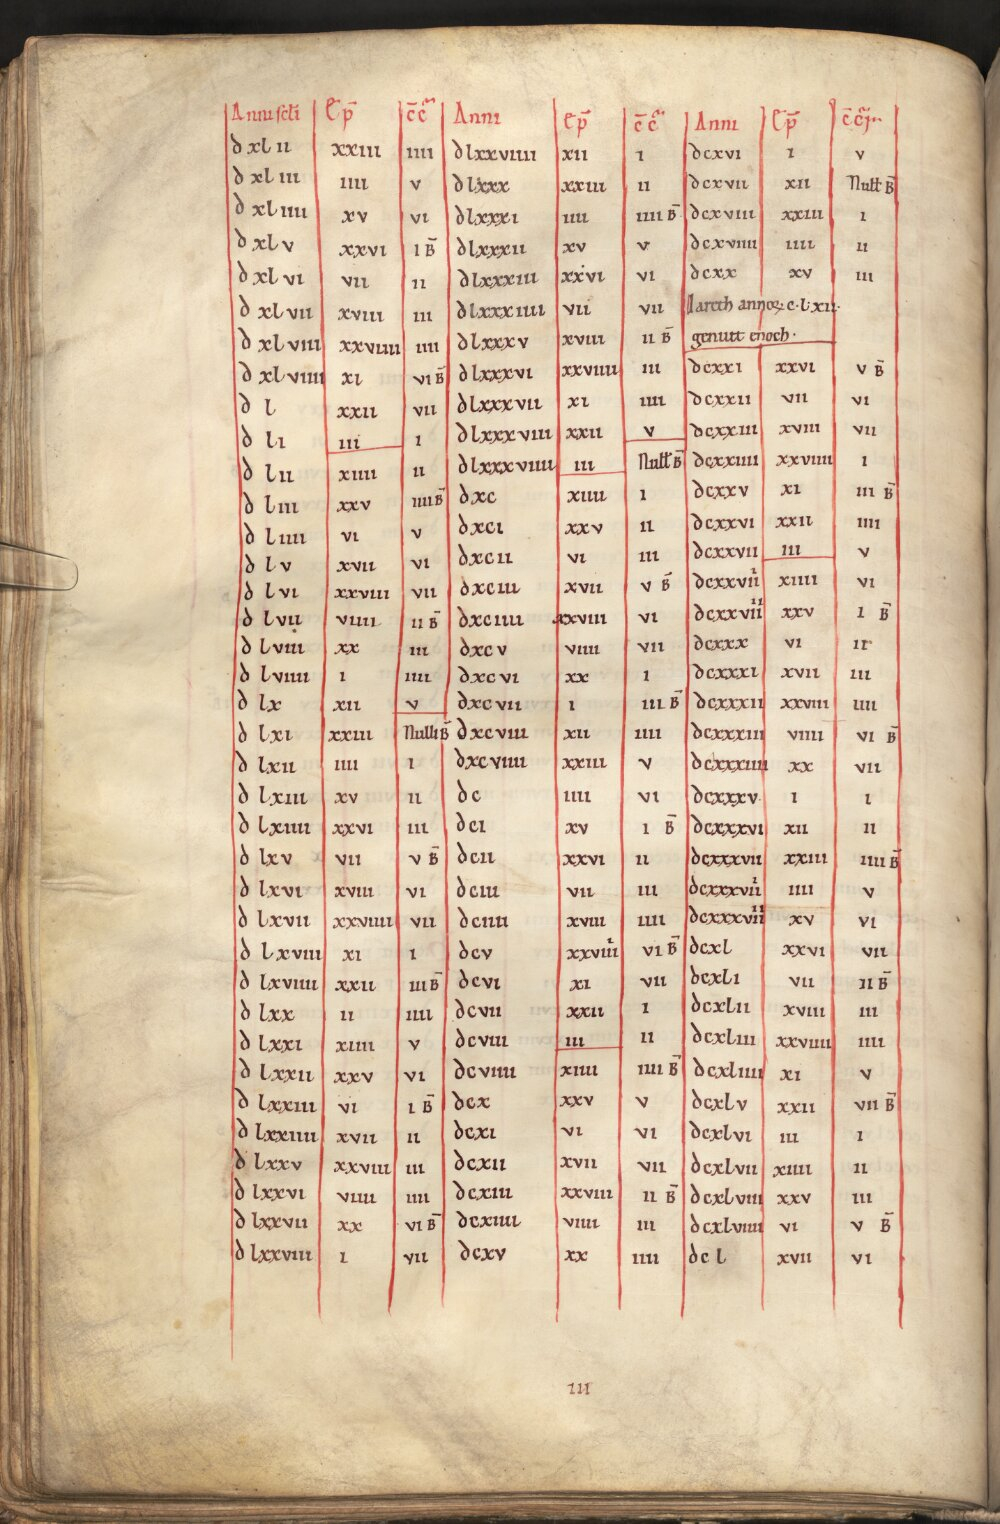 Anni scti Ep̄ c̄c̄ Anni Ep̄ c̄c̄ Anni Ep̄ c̄c̄
dxlii xxiii iiii dlxxviiii xii i dcxvi i v
dxliii iiii v dlxxx xxiii ii dcxvii xii Null B̄
dxliiii xv vi dlxxxi iiii iiii B̄ dcxviii xxiii i
dxlv xxvi i B̄ dlxxxii xv v dcxviiii iiii ii
dxlvi vii ii dlxxxiii xxvi vi dcxx xv iii
dxlvii xviii iii dlxxxiiii vii vii Iareth annoꝝ c·lxii·
dxlviii xxviiii iiii dlxxxv xviii ii B̄ genuit enoch·
dxlviiii xi vi B̄ dlxxxvi xxviiii iii dcxxi xxvi v B̄
dl xxii vii dlxxxvii xi iiii dcxxii vii vi
dli iii i dlxxxviii xxii v dcxxiii xviii vii
dlii xiiii ii dlxxxviiii iii Null B̄ dcxxiiii xxviiii i
dliii xxv iiii B̄ dxc xiiii i dcxxv xi iii B̄
dliiii vi v dxci xxv ii dcxxvi xxii iiii
dlv xvii vi dxcii vi iii dcxxvii iii v
dlvi xxviii vii dxciii xvii v B̄ dcxxviii xiiii vi
dlvii viiii ii B̄ dxciiii xxviii vi dcxxviiii xxv i B̄
dlviii xx iii dxcv viiii vii dcxxx vi ii
dlviiii i iiii dxcvi xx i dcxxxi xvii iii
dlx xii v dxcvii i iii B̄ dcxxxii xxviii iiii
dlxi xxiii Nulli B̄ dxcviii xii iiii dcxxxiii viiii vi B̄
dlxii iiii i dxcviiii xxiii v dcxxxiiii xx vii
dlxiii xv ii dc iiii vi dcxxxv i i
dlxiiii xxvi iii dci xv i B̄ dcxxxvi xii ii
dlxv vii v B̄ dcii xxvi ii dcxxxvii xxiii iiii B̄
dlxvi xviii vi dciii vii iii dcxxxviii iiii v
dlxvii xxviiii vii dciiii xviii iiii dcxxxviiii xv vi
dlxviii xi i dcv xxviiii vi B̄ dcxl xxvi vii
dlxviiii xxii iii B̄ dcvi xi vii dcxli vii ii B̄
dlxx ii iiii dcvii xxii i dcxlii xviii iii
dlxxi xiiii v dcviii iii ii dcxliii xxviiii iiii
dlxxii xxv vi dcviiii xiiii iiii B̄ dcxliiii xi v
dlxxiii vi i B̄ dcx xxv v dcxlv xxii vii B̄
dlxxiiii xvii ii dcxi vi vi dcxlvi iii i
dlxxv xxviii iii dcxii xvii vii dcxlvii xiiii ii
dlxxvi viiii iiii dcxiii xxviii ii B̄ dcxlviii xxv iii
dlxxvii xx vi B̄ dcxiiii viiii iii dcxlviiii vi v B̄
dlxxviii i vii dcxv xx iiii dcl xvii vi
iii